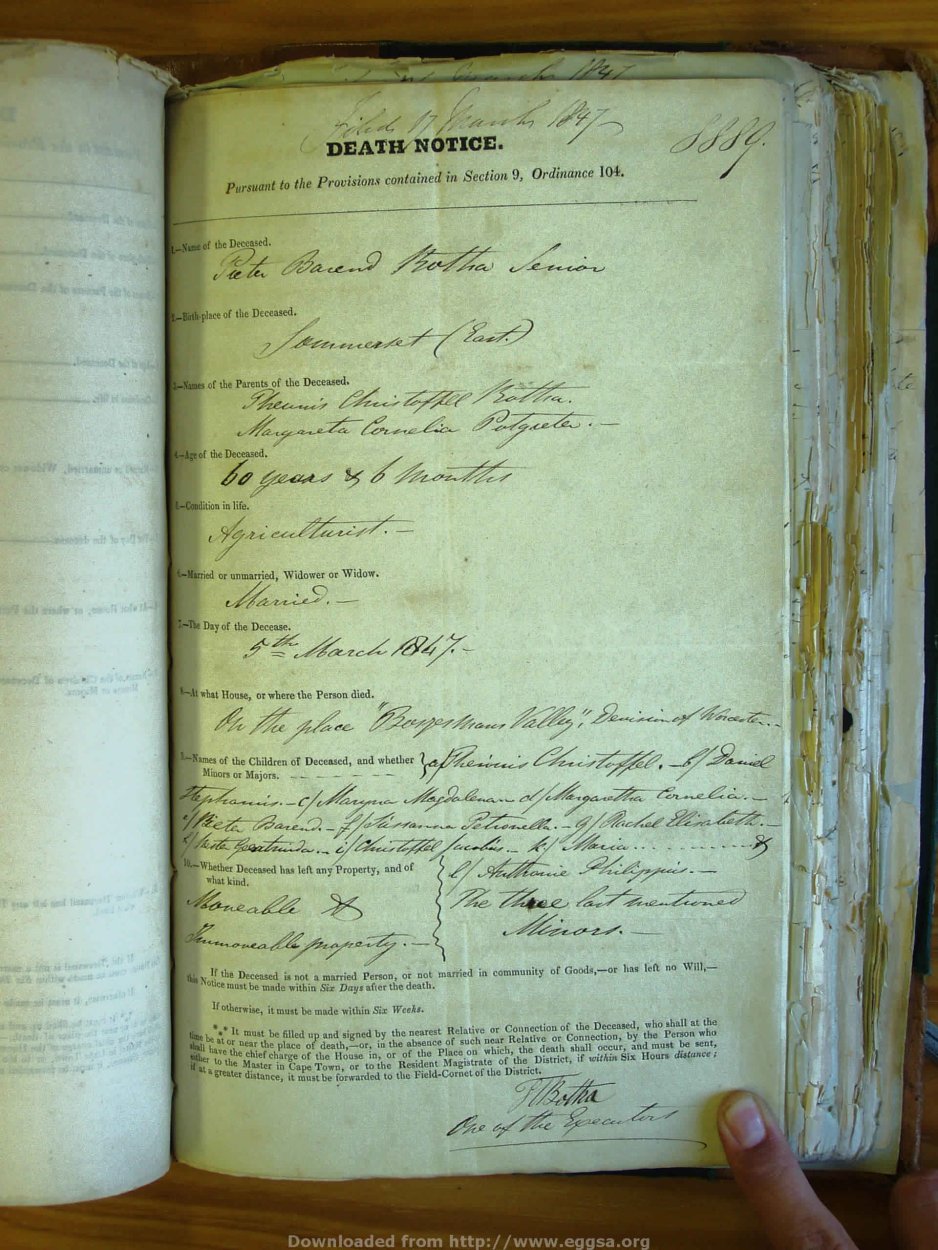 Filed 17 March 1847
8889.
DEATH NOTICE.
Pursuant to the Provisions contained in Section 9, Ordinance 104.
1.—Name of the Deceased.
Pieter Barend Botha Senior
2.—Birth-place of the Deceased.
Sommerset (East.)
3.—Names of the Parents of the Deceased.
Theunis Christoffel Botha.
Margareta Cornelia Potgieter.—
4.—Age of the Deceased.
60 years & 6 Months
5.—Condition in life.
Agriculturist.—
6.—Married or unmarried, Widower or Widow.
Married.—
7.—The Day of the Decease.
5th March 1847.—
8.—At what House, or where the Person died.
On the place "Bosjesmans Valley", Division of Worcester
9.—Names of the Children of Deceased, and whether
Minors or Majors.
a/ Theunis Christoffel.—b/ Daniel
Stephanus.—c/ Maryna Magdalena—d/ Margaretha Cornelia.—
e/ Pieter Barend.—f/ Sussanna Petronella.—g/ Rachel Elisabeth.—
h/ Hester Gertruida.—i/ Christoffel Jacobus—k/ Maria &
l/ Anthonie Philippus.—
The three last mentioned
Minors.—
10.—Whether Deceased has left any Property, and of
what kind.
Moveable &
Immoveable property.—
If the Deceased is not a married Person, or not married in community of Goods,—or has left no Will,—
this Notice must be made within Six Days after the death.
If otherwise, it must be made within Six Weeks.
*** It must be filled up and signed by the nearest Relative or Connection of the Deceased, who shall at the
time be at or near the place of death,—or, in the absence of such near Relative or Connection, by the Person who
shall have the chief charge of the House in, or of the Place on which, the death shall occur, and must be sent,
either to the Master in Cape Town, or to the Resident Magistrate of the District, if within Six Hours distance;
if at a greater distance, it must be forwarded to the Field-Cornet of the District.
Botha
One of the Executors
Downloaded from http://www.eggsa.org